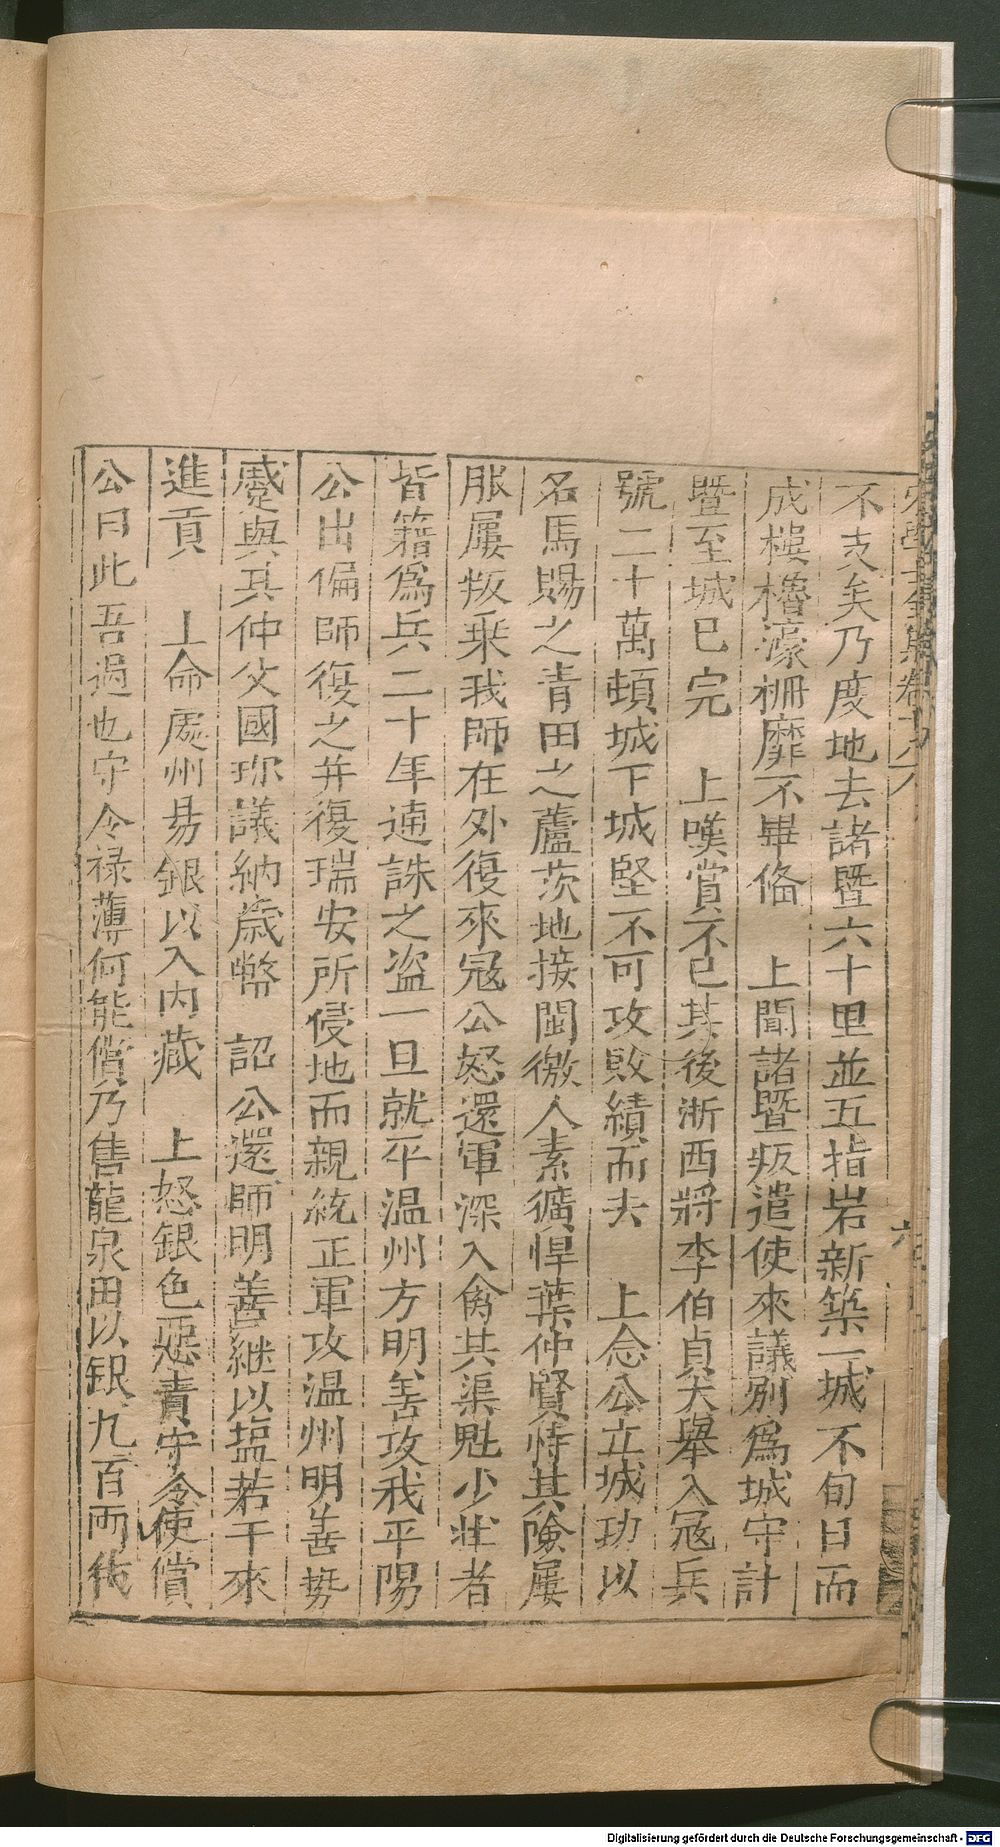 不支矣乃度地去諸暨六十里並五指岩新築一城不旬日而
成樓櫓濠柵靡不畢俻　上聞諸暨叛遣使來議別爲城守計
暨至城已完　上嘆賞不已其後淅西將李伯貞大舉入冦兵
號二十萬頓城下城堅不可攻敗績而去　上念公立城功以
名馬賜之青田之蘆茨地接閩徼人素獷悍葉仲賢恃其險屢
服屢叛乗我師在外復來冦公怒還軍深入禽其渠魁少壮者
皆籍爲兵二十年逋誅之盗一旦就平温州方明善攻我平陽
公出偏師復之并復瑞安所侵地而親統正軍攻温州明善勢
蹙與其仲父國珎議納歳幣　詔公還師明善継以塩若干來
進貢　上命處州易銀以入内藏　上怒銀色惡責守令使償
公曰此吾過也守令禄薄何能償乃售龍泉田以銀九百兩代
六
Digitalisierung gefördert durch die Deutsche Forschungsgemeinschaft - DFG